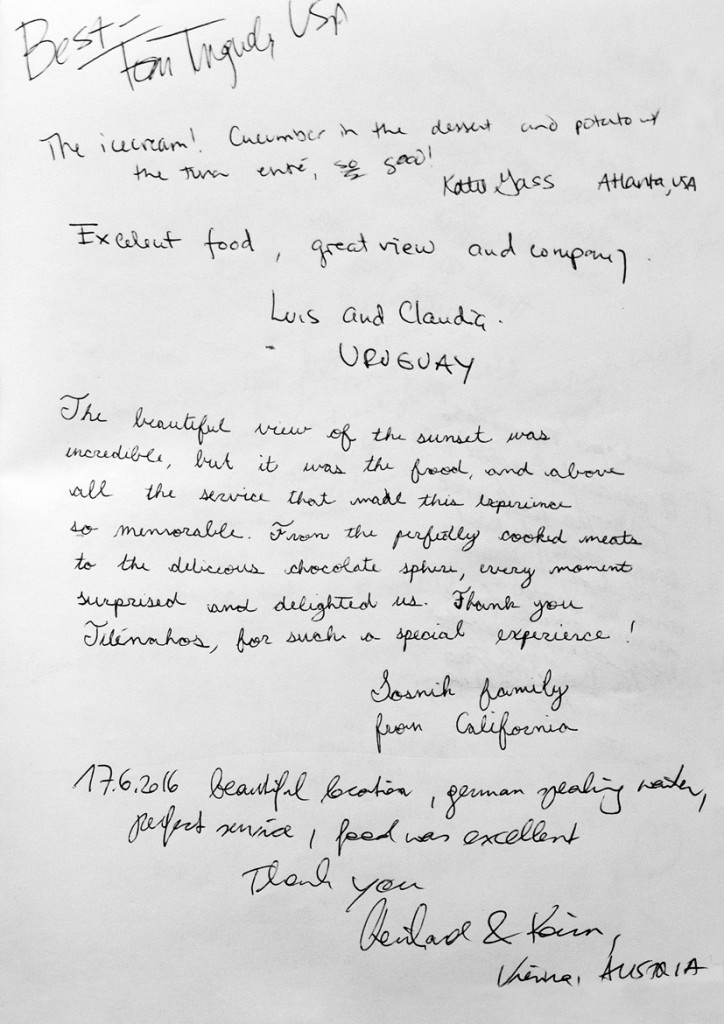 Best -
Tom USA
The icecream! Cucumber in the dessert and potato w/
the tuna entré, so good!
Katie Gass Atlanta, USA
Excelent food, great view and company.
Luis and Claudia.
URUGUAY
The beautiful view of the sunset was
incredible, but it was the food, and above
all the service that made this experience
so memorable. From the perfectly cooked meats
to the delicious chocolate sphere, every moment
surprised and delighted us. Thank you
Tilémahos, for such a special experience!
Sosnik family
from California
17.6.2016 beautiful location, german speaking waiter,
perfect service, food was excellent
Thank you
& Karin,
Vienna, AUSTRIA